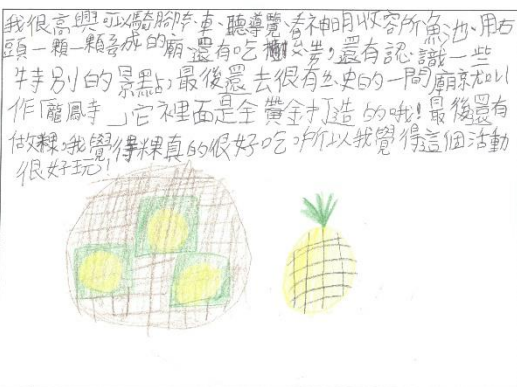 我很高興可以騎腳踏車、聽導覽、看神明收容所、魚池、用石
頭一顆一顆疊成的廟還有吃，還有認識一些
特別的景點，最後還去很有歷史的一間廟就叫
作「龍鳳寺」它裡面是全黃金打造的哦！最後還有
做粿，我覺得粿真的很好吃，所以我覺得這個活動
很好玩！